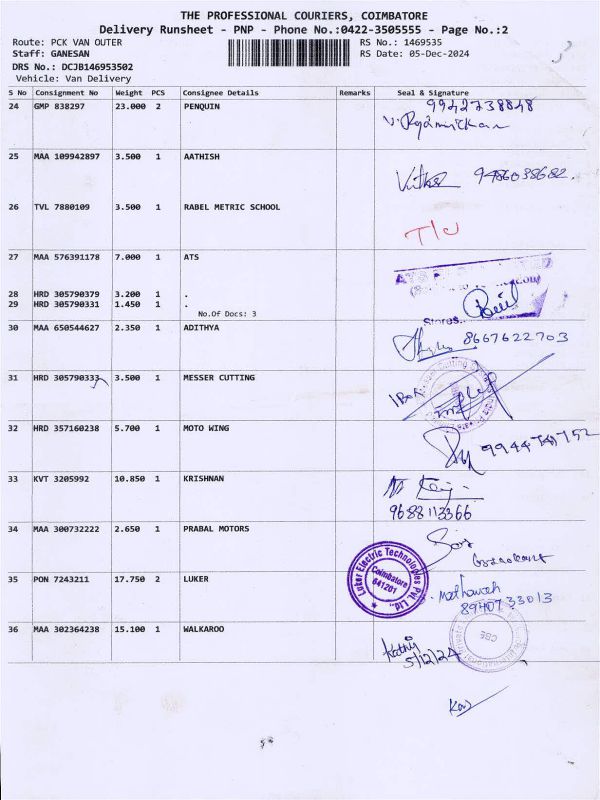 THE PROFESSIONAL COURIERS, COIMBATORE
Delivery Runsheet - PNP - Phone No.:0422-3505555 - Page No.:2
Route: PCK VAN OUTER RS No.: 1469535
Staff: GANESAN RS Date: 05-Dec-2024
DRS No.: DCJB146953502
Vehicle: Van Delivery
S No Consignment No Weight PCS Consignee Details Remarks Seal & Signature
24 GMP 838297 23.000 2 PENQUIN 9942738848
25 MAA 109942897 3.500 1 AATHISH
9486038682.
26 TVL 7880109 3.500 1 RABEL METRIC SCHOOL
27 MAA 576391178 7.000 1 ATS
28 HRD 305790379 3.200 1 .
29 HRD 305790331 1.450 1 .
No.Of Docs: 3
Stores
30 MAA 650544627 2.350 1 ADITHYA 8667622703
31 HRD 305790333 3.500 1 MESSER CUTTING
1Box
32 HRD 357160238 5.700 1 MOTO WING
33 KVT 3205992 10.850 1 KRISHNAN
9688113366
34 MAA 300732222 2.650 1 PRABAL MOTORS
Luker Electric Technologies Pvt. Ltd.
Coimbatore
641201
35 PON 7243211 17.750 2 LUKER
8940733013
36 MAA 302364238 15.100 1 WALKAROO
5/12/24
CBE